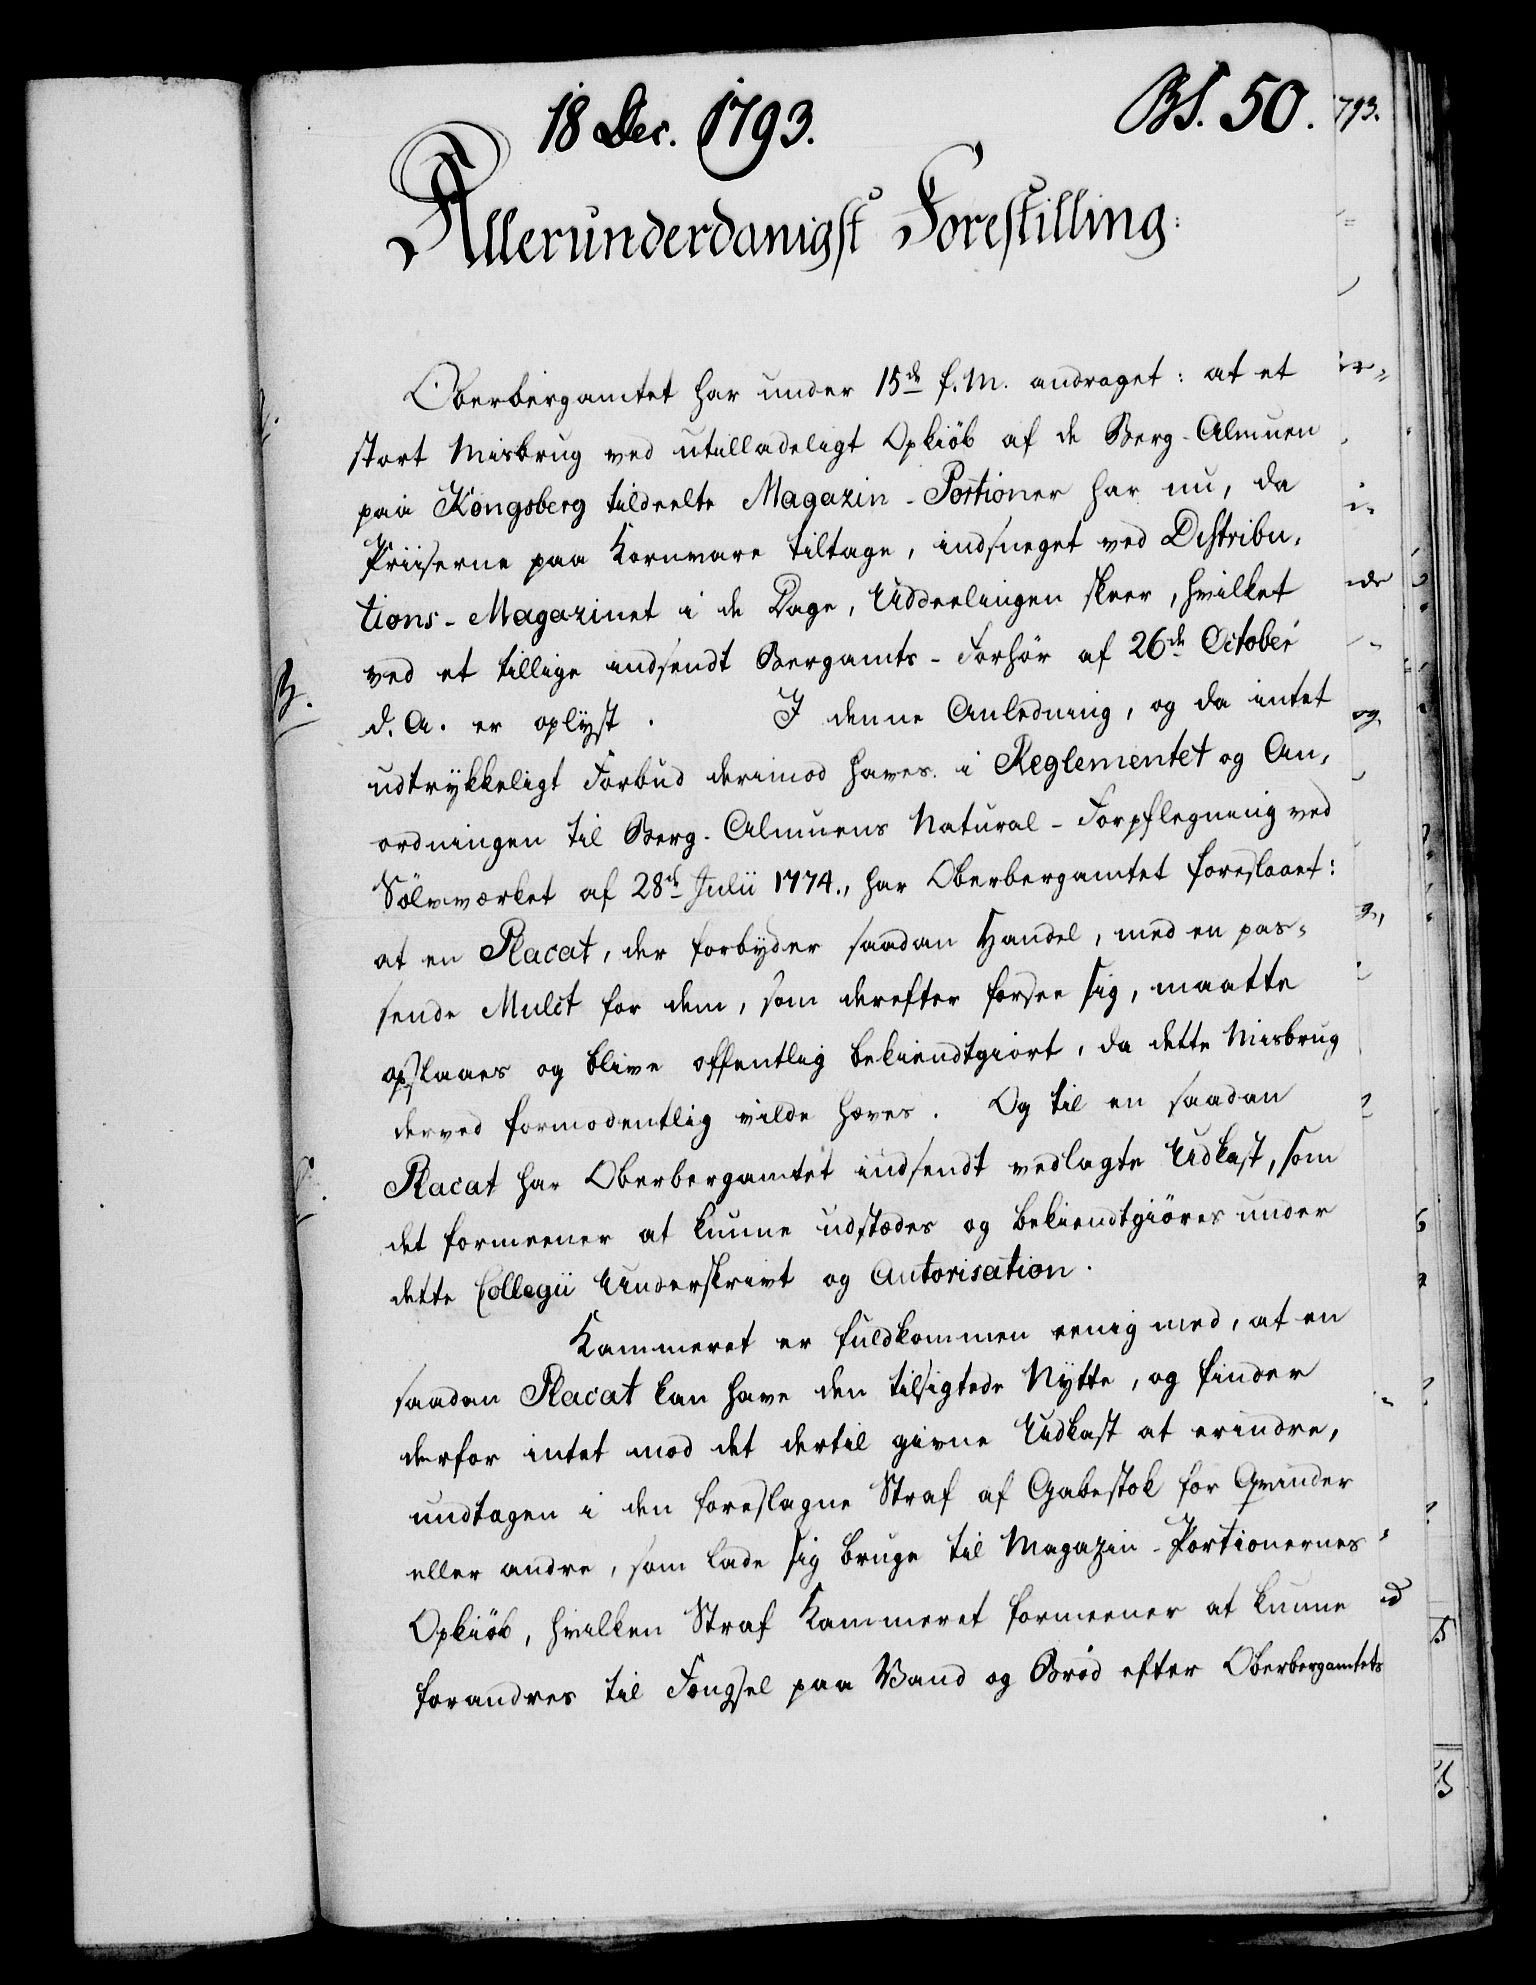 18 Dec. 1793.
BS. 50.
Allerunderdanigst Forestilling:
Oberbergamtet har under 15de f. M. andraget: at et
stort Misbrug ved utilladeligt Opkiöb af de Berg-Almuen
paa Kongsberg tildeelte Magazin-Portioner har nu, da
Priiserne paa Kornvare tiltage, indsneget ved Distribu,
tions-Magazinet i de Dage, Uddeelingen skeer, hvilket
ved et tillige indsendt Bergamts-Forhör af 26de October
d. A. er oplÿst. I denne Anledning, og da intet
udtrÿkkeligt Forbud derimod haves i Reglementet og An,
ordningen til Berg-Almuens Natural-Forpflegning ved
Sölvværket af 28de Julii 1774., har Oberbergamtet foreslaaet:
at en Placat, der forbÿder saadan Handel, med en pas,
sende Mulct for dem, som derefter forsee sig, maatte
opslaaes og blive offentlig bekiendtgiort, da dette Misbrug
derved formodentlig vilde hæves. Og til en saadan
Placat har Oberbergamtet indsendt vedlagte Udkast, som
det formeener at kunne udstædes og bekiendtgiöres under
dette Collegii Underskrivt og Autorisation.
Kammeret er fuldkommen eenig med, at en
saadan Placat kan have den tilsigtede Nÿtte, og finder
derfor intet mod det dertil givne Udkast at erindre,
undtagen i den foreslagne Straf af Gabestok for Qvinder
eller andre, som lade sig bruge til Magazin-Portionernes
Opkiöb, hvilken Straf Kammeret formeener at kunne
forandres til Fængsel paa Vand og Bröd efter Oberbergamtets
B.
793.
og